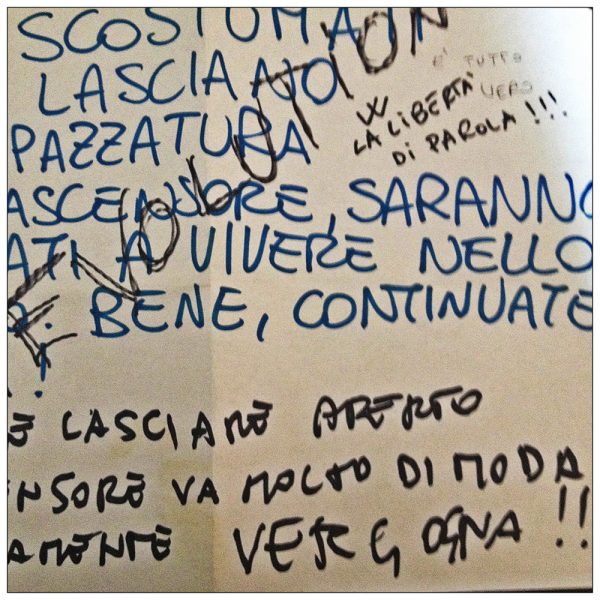 SCOSTUMATI
LASCIANO
PAZZATURA
ASCENSORE, SARANNO
ATI A VIVERE NELLO
BENE, CONTINUATE
!
REVOLUTION
E' TUTTO
VERO
W
LA LIBERTÀ
DI PAROLA!!!
E LASCIARE APERTO
ENSORE VA MOLTO DI MODA
AMENTE VERGOGNA!!